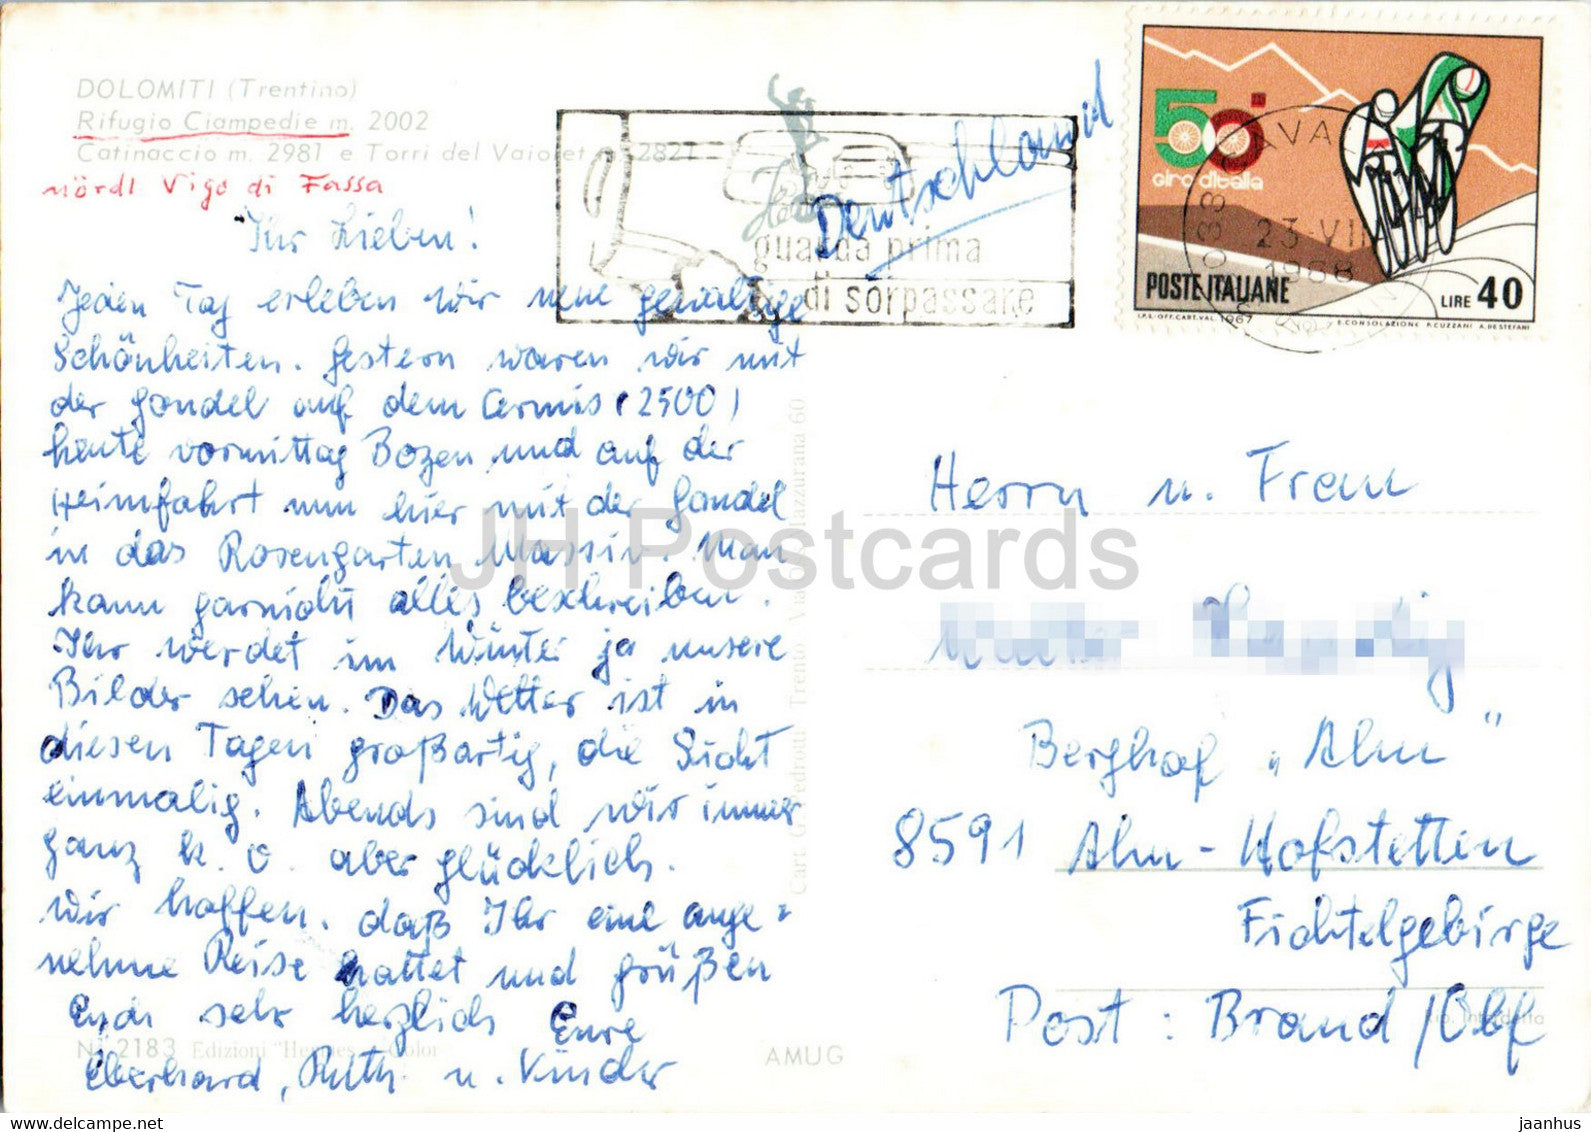 DOLOMITI (Trentino)
Rifugio Ciampedie m. 2002
Catinaccio m. 2981 e Torri del Vaiolet m. 2821
nördl Vigo di Fassa
Ihr Lieben!
Jeden Tag erleben wir neue gewaltige
Schönheiten. Gestern waren wir mit
der Gondel auf dem Cermis (2500)
heute vormittag Bozen und auf der
Heimfahrt nun hier mit der Gondel
in das Rosengarten Massiv. Man
kann garnicht alles beschreiben.
Ihr werdet im Winter ja unsere
Bilder sehen. Das Wetter ist in
diesen Tagen großartig, die Sicht
einmalig. Abends sind wir immer
ganz k. o. aber glücklich.
Wir hoffen, daß Ihr eine ange=
nehme Reise hattet und grüßen
Euch sehr herzlich Eure
Eberhard, Ruth u. Kinder
N. 2183 Edizioni "Hermes - Color
AMUG
Cart. G. Pedrotti Trento Via
60
guarda prima
di sorpassare
Deutschland
50°
giro d'italia
POSTE ITALIANE
LIRE 40
I.P.S.-OFF.CART.VAL.-1967
E.CONSOLAZIONE R.CUZZANI A.DESTEFANI
CAVA
23-VII
1968
Herrn u. Frau
Berghof „Alm"
8591 Alm-Hofstetten
Fichtelgebirge
Post: Brand/Obf
Rip. Interdetta
JH Postcards
www.delcampe.net
jaanhus